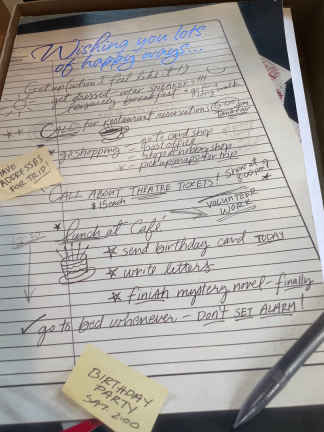 Wishing you lots
of happy ways...
Get up when I feel like it!
get dressed
leisurely breakfast
CALL for restaurant reservations
go shopping - go to card shop
post office
stop at
pick up maps for trip
HAVE
ADDRESSES
FOR TRIP
CALL ABOUT THEATRE TICKETS!
$15 each
SHOW AT
VOLUNTEER
WORK
Lunch at Café
send birthday card TODAY
write letters
finish mystery novel - finally
go to bed whenever - DON'T SET ALARM!
BIRTHDAY
PARTY
SAT. 2:00